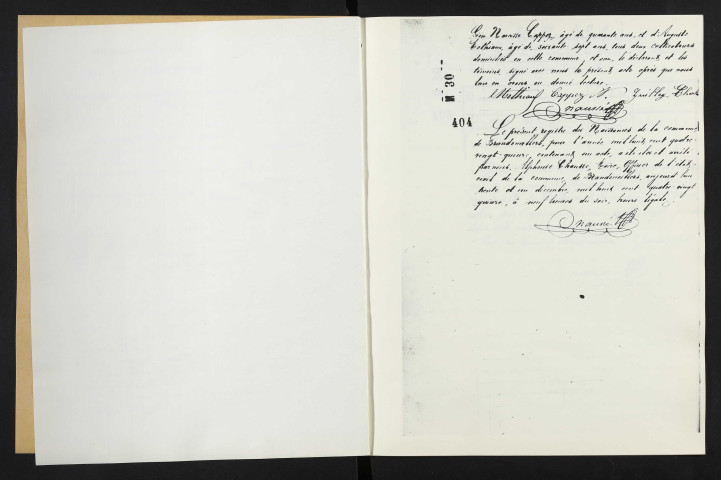 Cappez, âgé de quarante ans, et d'Auguste
Mathieu, âgé de soixante sept ans, tous deux cultivateurs
domiciliés en cette commune, et ont, le déclarant et les
témoins, signé avec nous le présent acte après que nous
leur en avons donné lecture.
Mathieu Cappez N.
Chaussé
M 30
404
Le présent registre des Naissances de la commune
de Brandonvillers, pour l'année mil huit cent quatre-
vingt-quinze, contenant un acte, a été clos et arrêté
par nous, Alphonse Chaussé, Maire, Officier de l'état-
civil de la commune de Brandonvillers, aujourd'hui
trente et un décembre, mil huit cent quatre vingt
quinze, à neuf heures du soir, heure légale.
Chaussé